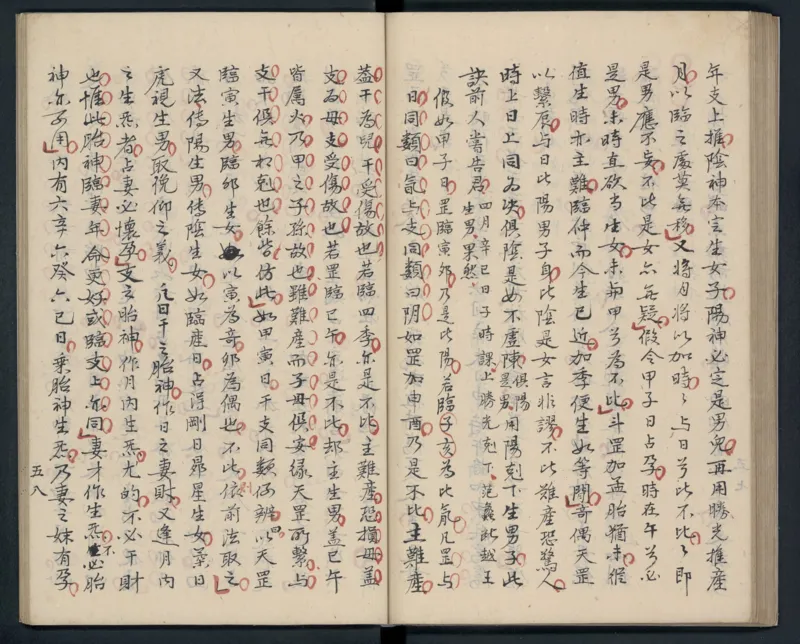 年支上推陰神本宮生女子陽神必定是男兒再用勝光推產
月以臨之處莫無移又將月將以加時時與日兮比不比比即
是男應不妄不比是女亦無疑假令甲子日占孕時在午兮必
是男未時直欲当生女未与甲兮為不比斗罡加孟胎猶未
值生時亦主難臨仲而今生已近加季便生如等閑奇偶天罡
以繫辰与日比陽男子身比陰是女言非謬不比難產恐驚人
時上日上同為決俱陰是女不虛陳俱陽是男用陽剋下生男子此
訣前人嘗告君四月辛巳日子時課上勝光剋下范蠡断越王生男果然
假如甲子日罡臨寅卯乃是比陽若臨子亥為比氣凡罡与
日同類曰氣与支同類曰阴如罡加申酉乃是不比主難產
蓋干為兒干受傷故也若臨四季亦是不比主難產恐損母蓋
支為母支受傷故也若罡臨巳午亦是不比却主生男蓋巳午
皆属火乃甲之子孫故也雖難產而子母俱安緣天罡所繫与
支干俱無相剋也餘皆仿此如甲寅日干支同類何辨以天罡
臨寅生男臨卯生女以寅為奇卯為偶也不比依前法取之
又法傳陽生男傳陰生女如臨產日占得剛日昴星生女柔日
虎視生男取俛仰之義凡日干之胎神作日之妻財又逢月内
之生炁者占妻必懷孕支之胎神作月内生炁尤的不必干財
也惟此胎神臨妻年命更好或臨支上亦同妻才作生炁不必胎
神亦可用内有六辛六癸六巳日乗胎神生炁乃妻之妹有孕
五八